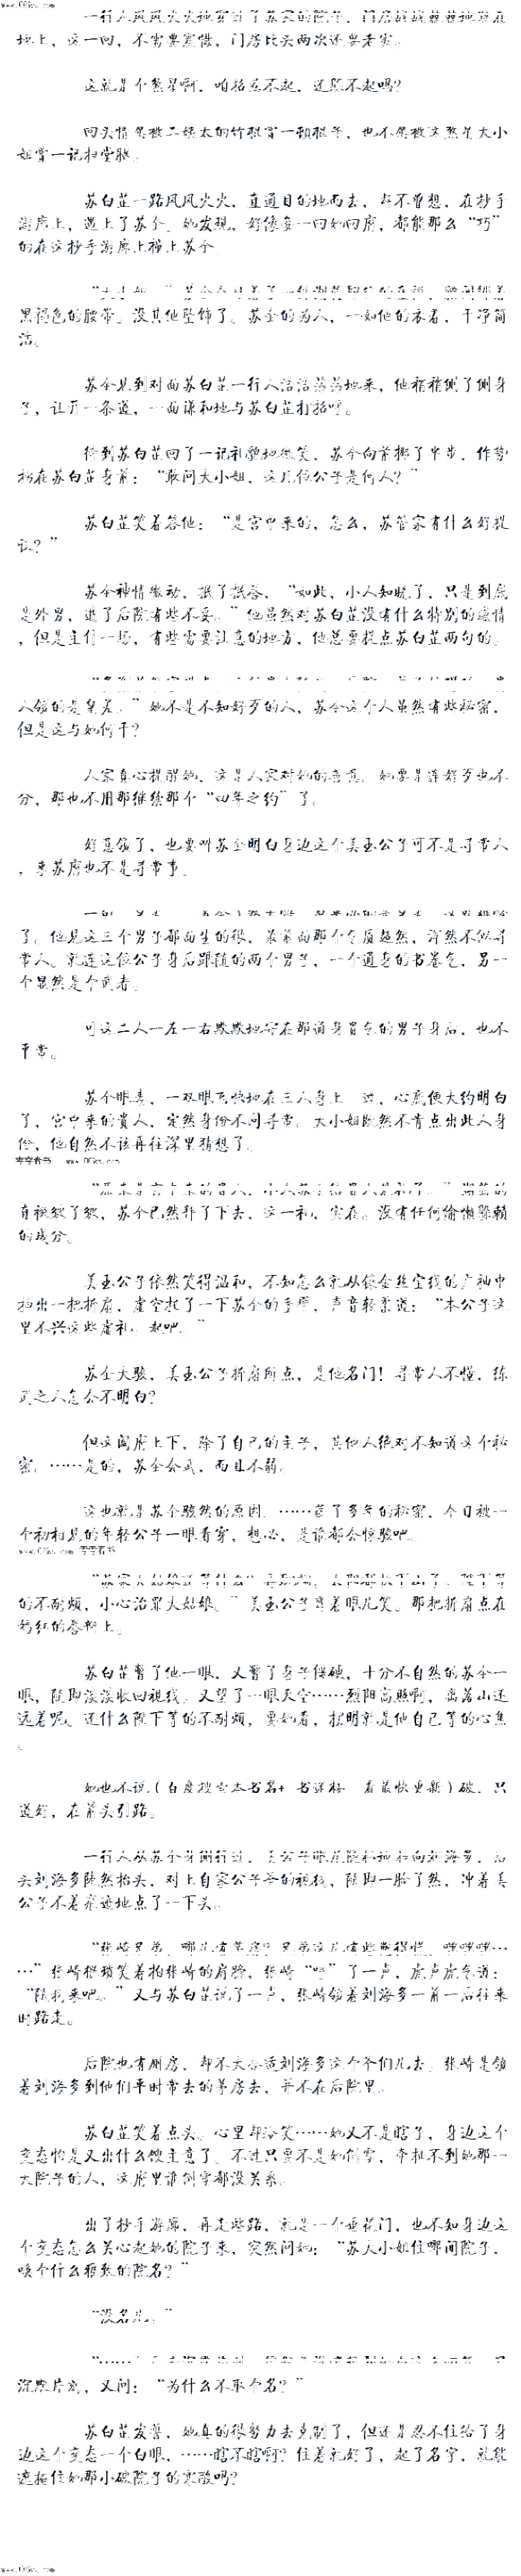 地上，这一回，不需要震慑，门房比头两次还要老实。
这就是个煞星啊，咱招惹不起，还躲不起吗？
回头情愿被二姨太的竹棍赏一顿棍子，也不愿被这煞星大小
姐赏一记扫堂腿。
苏白芷一路风风火火，直通目的地而去，却不曾想，在抄手
游廊上，遇上了苏全。她发现，好像每一回她回府，都能那么“巧”
的在这抄手游廊上碰上苏全。
黑褐色的腰带。没其他坠饰了。苏全的为人，一如他的衣着，干净简
洁。
苏全见到对面苏白芷一行人浩浩荡荡地来，他稍稍侧了侧身
子，让开一条道，一面谦和地与苏白芷打招呼。
待到苏白芷回了一记礼貌地微笑，苏全向前挪了半步，作势
挡在苏白芷身前：“敢问大小姐，这几位公子是何人？”
苏白芷笑着答他：“是宫中来的，怎么，苏管家有什么好提
议？”
苏全神情微动，抿了抿唇，“如此，小人知晓了，只是到底
是外男，进了后院有些不妥。”他虽然对苏白芷没有什么特别的感情
，但是主仆一场，有些需要注意的地方，他总要提点苏白芷两句的。
人领的是皇差。”她不是不知好歹的人，苏全这个人虽然有些秘密，
但是这与她何干？
人家真心提醒她，这是人家对她的善意。她要是连好歹也不
分，那也不用那继续那个“四年之约”了。
好意领了，也要叫苏全明白身边这个美玉公子可不是寻常人
，来苏府也不是寻常事。
了。他见这三个男子都面生的很，最前面那个气质超然，浑然不似寻
常人。就连这位公子身后跟随的两个男子，一个通身的书卷气，另一
个显然是个武者。
可这二人一左一右默默地守在那通身贵气的男子身后，也不
平常。
苏全眼毒，一双眼飞快地在三人身上一过，心底便大约明白
了，宫中来的贵人，定然身份不同寻常。大小姐既然不肯点出此人身
份，他自然不该再往深里猜想了。
的成分。
美玉公子依然笑得温和，不知怎么就从镶金丝宝线的广袖中
抽出一把折扇，虚空托了一下苏全的手臂，声音轻柔道：“本公子这
里不兴这些虚礼，起吧。”
苏全大骇，美玉公子折扇所点，是他名门！寻常人不懂，练
武之人怎会不明白？
但这阖府上下，除了自己的主子，其他人绝对不知道这个秘
密。……是的，苏全会武，而且不弱。
这也就是苏全骇然的原因。……藏了多年的秘密，今日被一
个初相见的年轻公子一眼看穿，想必，是谁都会惊骇吧。
的不耐烦，小心治罪大姑娘。”美玉公子弯着眼儿笑。那把折扇点在
嫣红的唇瓣上。
苏白芷瞥了他一眼，又瞥了身子僵硬，十分不自然的苏全一
眼，随即淡淡收回视线。又望了一眼天空……烈阳高照啊，离落山还
远着呢。还什么陛下等的不耐烦，要她看，摆明就是他自己等的心焦
。
她也不说（百度搜索本书名+ 书评标 看最快更新）破，只
道好，在前头引路。
头刘海多陡然抬头，对上自家公子爷的视线，随即一脸了然，冲着美
公子不着痕迹地点了一下头。
“张崎兄弟，哪儿有茅房？兄弟这儿有些憋得慌，嘿嘿嘿…
…”张崎猥琐笑着拍张崎的肩膀，张崎“嗯”了一声，虎声虎气道：
“随我来吧。”又与苏白芷说了一声，张崎领着刘海多一前一后往来
时路走。
后院也有厕房，却不大合适刘海多这个爷们儿去，张崎是领
着刘海多到他们平时常去的茅房去，并不在后院里。
苏白芷笑着点头。心里却冷笑……她又不是瞎子，身边这个
变态怕是又出什么馊主意了。不过只要不是她倒霉，牵扯不到她那一
大院子的人，这府里谁倒霉都没关系。
出了抄手游廊，再走些路，就是一个垂花门，也不知身边这
个变态怎么关心起她的院子来，突然问她：“苏大小姐住哪间院子，
唤个什么雅致的院名？”
“没名儿。”
沉默片刻，又问：“为什么不取个名？”
苏白芷发誓，她真的很努力去克制了，但还是忍不住给了身
边这个变态一个白眼，……瞎不瞎啊？住着就好了，起了名字，就能
遮掩住她那小破院子的寒酸吗？